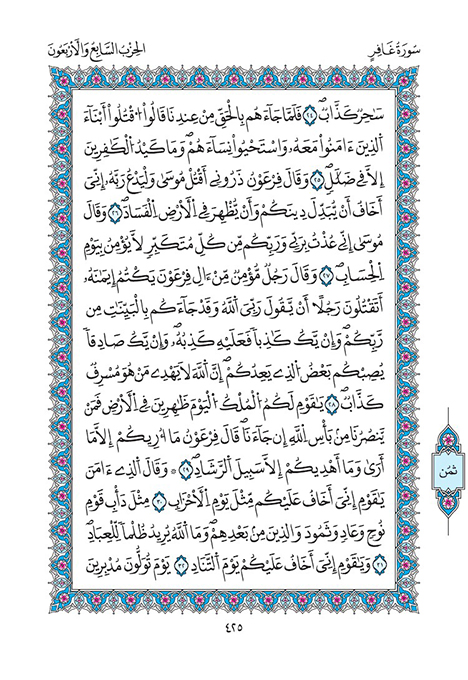 سُورَةُ غَافِرٍ
الحِزْبُ السَّابِعُ وَالْأَرْبَعُونَ
سَٰحِرٌ كَذَّابٌ ٢٤ فَلَمَّا جَآءَهُم بِالْحَقِّ مِنْ عِندِنَا قَالُوا۟ اُ۟قْتُلُوٓا۟ أَبْنَآءَ
اَ۬لذِينَ ءَامَنُوا۟ مَعَهُۥ وَاسْتَحْيُوا۟ نِسَآءَهُمْ وَمَا كَيْدُ اُ۬لْكَٰفِرِينَ
إِلَّا فِے ضَلَٰلٍ ٢٥ وَقَالَ فِرْعَوْنُ ذَرُونِےٓ أَقْتُلْ مُوسَىٰ وَلْيَدْعُ رَبَّهُۥٓ إِنِّىَ
أَخَافُ أَنْ يُّبَدِّلَ دِينَكُمْ وَأَنْ يُّظْهِرَ فِے اِ۬لْأَرْضِ اِ۬لْفَسَادَ ٢٦ وَقَالَ
مُوسَىٰٓ إِنِّے عُذْتُ بِرَبِّے وَرَبِّكُم مِّن كُلِّ مُتَكَبِّرٍ لَّا يُؤْمِنُ بِيَوْمِ
اِ۬لْحِسَابِ ٢٧ وَقَالَ رَجُلٌ مُّؤْمِنٌ مِّنَ ـ۟الِ فِرْعَوْنَ يَكْتُمُ إِيمَٰنَهُۥٓ
أَتَقْتُلُونَ رَجُلًا أَنْ يَّقُولَ رَبِّىَ اَ۬للَّهُ وَقَدْ جَآءَكُم بِالْبَيِّنَٰتِ مِن
رَّبِّكُمْ وَإِنْ يَّكُ كَٰذِباً فَعَلَيْهِ كَذِبُهُۥ وَإِنْ يَّكُ صَادِقاً
يُصِبْكُم بَعْضُ اُ۬لذِے يَعِدُكُمْ إِنَّ اَ۬للَّهَ لَا يَهْدِے مَنْ هُوَ مُسْرِفٌ
كَذَّابٌ ٢٨ يَٰقَوْمِ لَكُمُ اُ۬لْمُلْكُ اُ۬لْيَوْمَ ظَٰهِرِينَ فِے اِ۬لْأَرْضِ فَمَنْ
يَّنصُرُنَا مِنۢ بَأْسِ اِ۬للَّهِ إِن جَآءَنَا قَالَ فِرْعَوْنُ مَآ أُرِيكُمُۥٓ إِلَّا مَآ
أَرَىٰ وَمَآ أَهْدِيكُمُۥٓ إِلَّا سَبِيلَ اَ۬لرَّشَادِ ٢٩ وَقَالَ اَ۬لذِےٓ ءَامَنَ
يَٰقَوْمِ إِنِّىَ أَخَافُ عَلَيْكُم مِّثْلَ يَوْمِ اِ۬لْأَحْزَابِ ٣٠ مِثْلَ دَأْبِ قَوْمِ
نُوحٍ وَعَادٍ وَثَمُودَ وَالذِينَ مِنۢ بَعْدِهِمْ وَمَا اَ۬للَّهُ يُرِيدُ ظُلْماً لِّلْعِبَادِ
٣١ وَيَٰقَوْمِ إِنِّىَ أَخَافُ عَلَيْكُمْ يَوْمَ اَ۬لتَّنَادِ ٣٢ يَوْمَ تُوَلُّونَ مُدْبِرِينَ
ثُمُن
٤٢٥